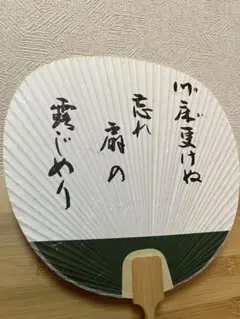 川床更けぬ
忘れ
扇の
露じめり